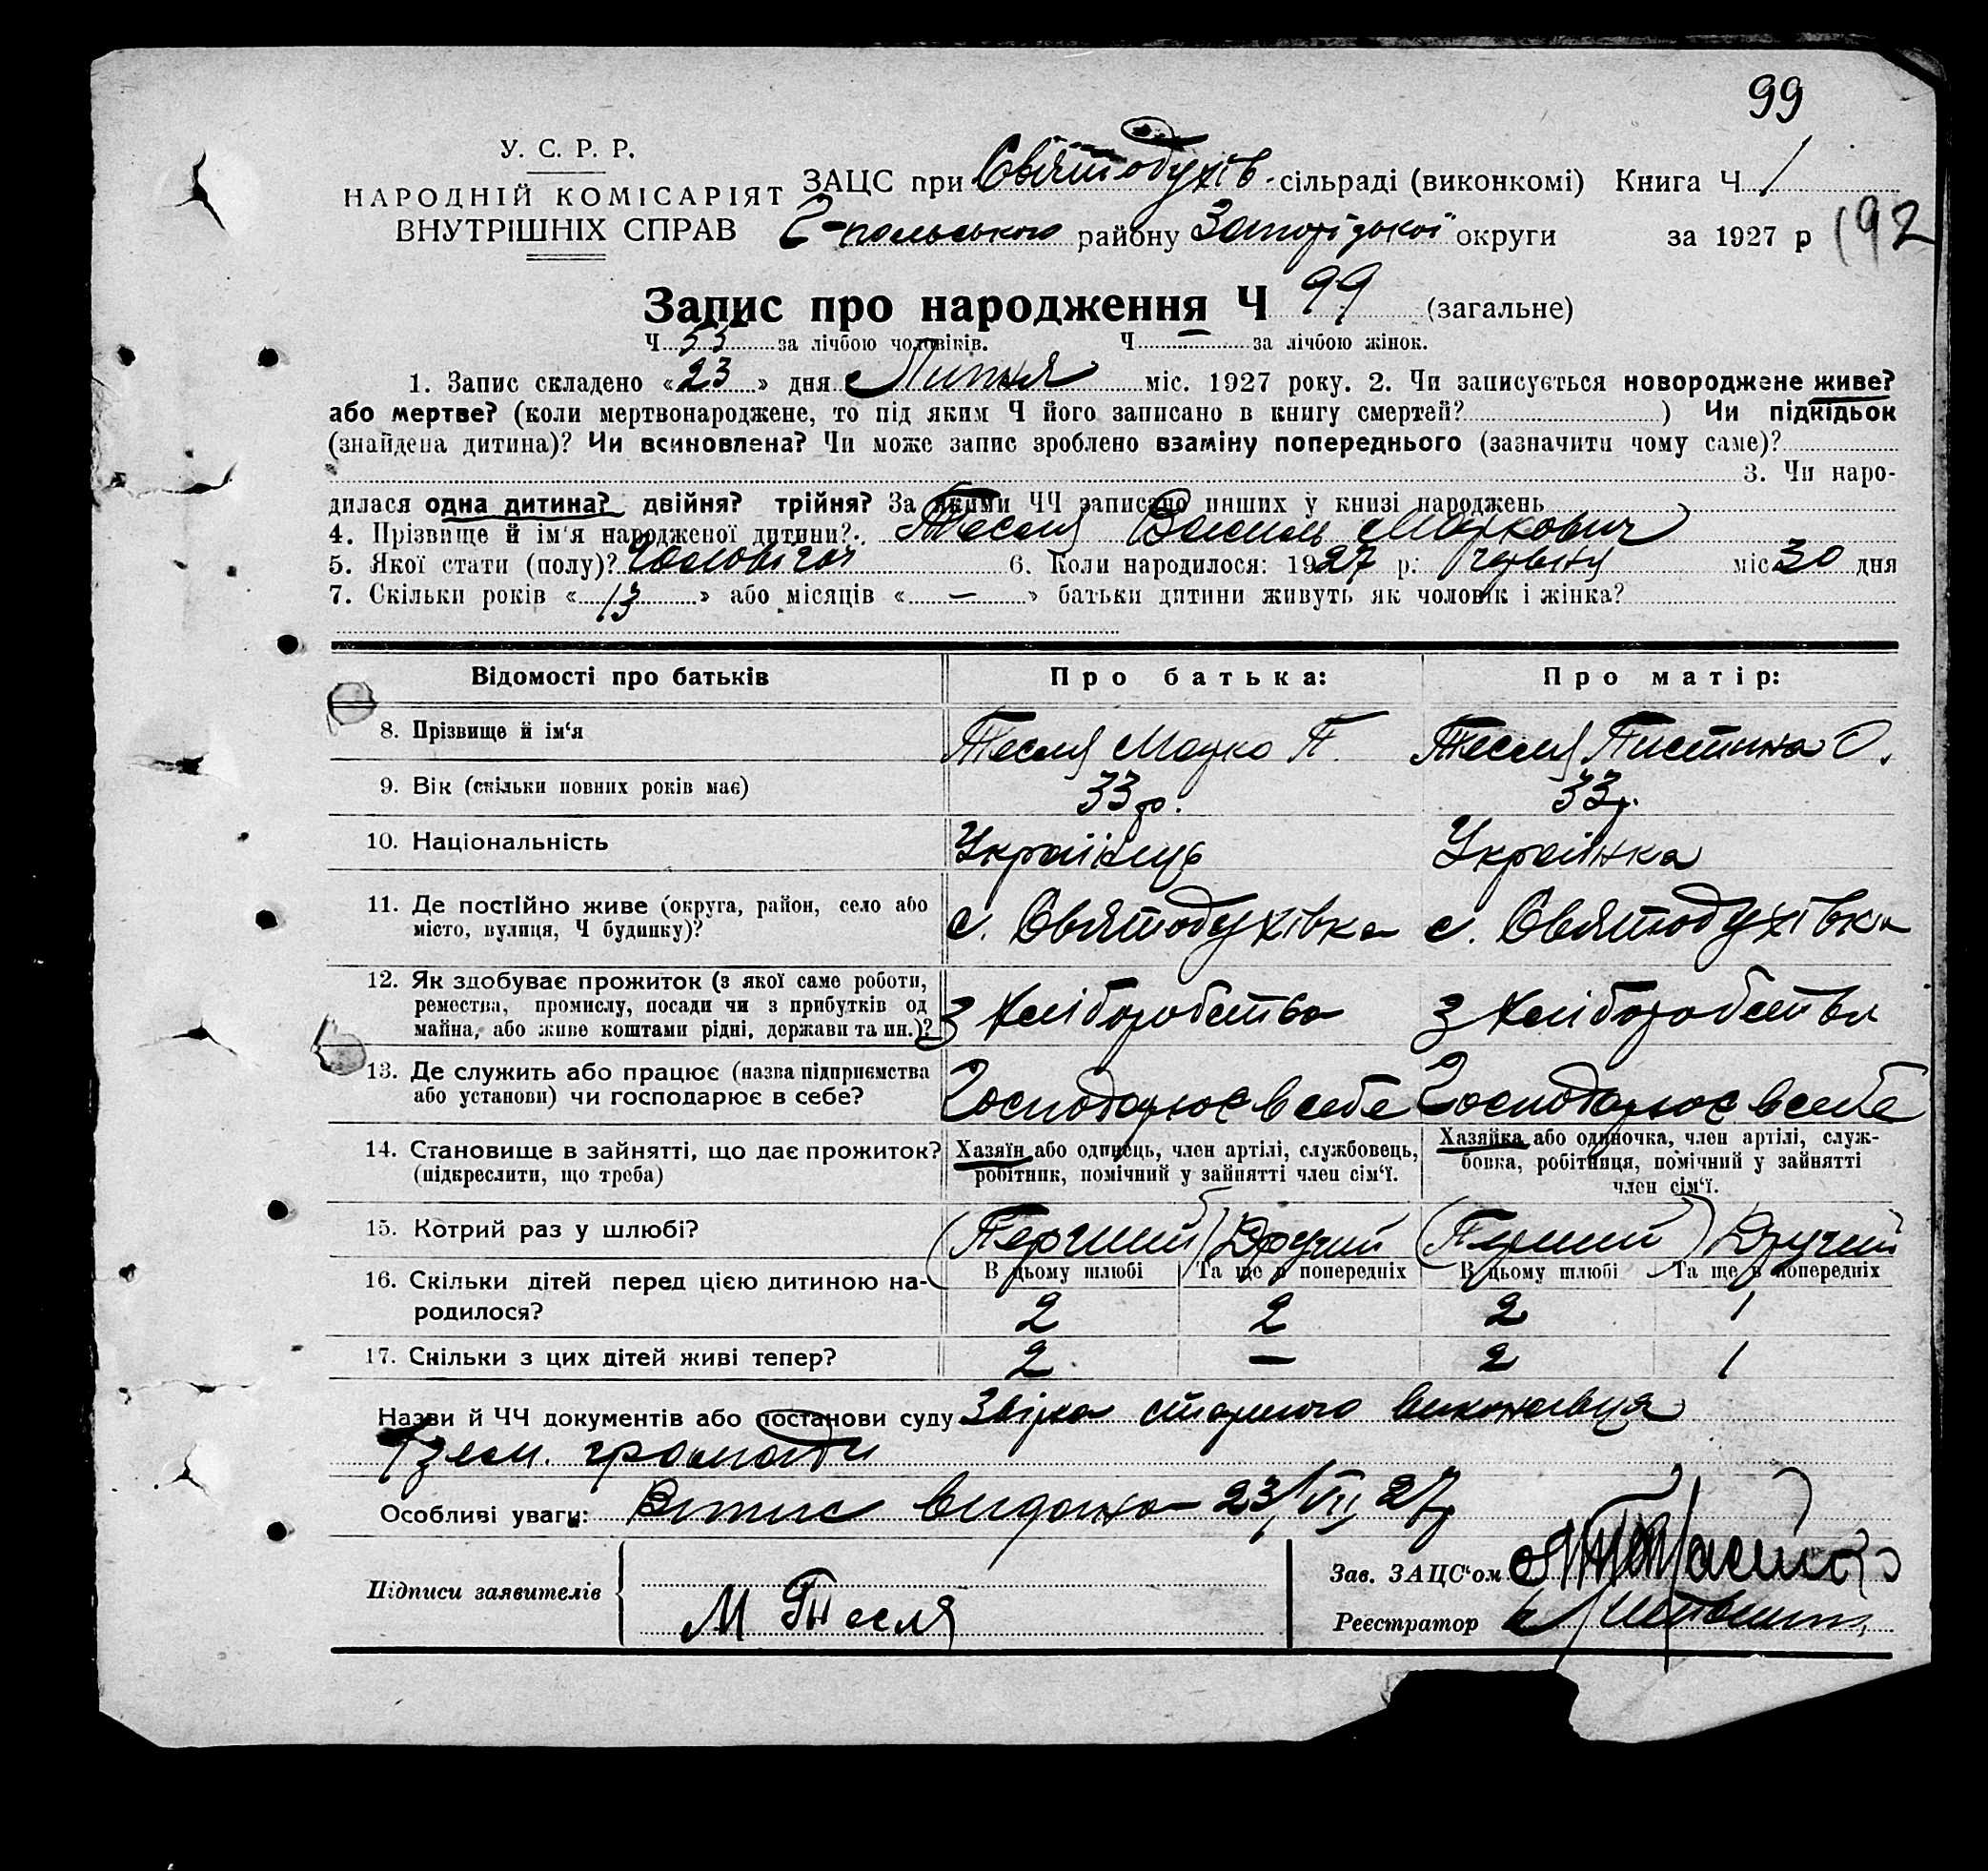 99
У. С. Р. Р.
НАРОДНІЙ КОМІСАРІЯТ
ВНУТРІШНІХ СПРАВ
ЗАЦС при Святодухів. сільраді (виконкомі) Книга Ч 1
польського району Запорізької округи за 1927 р 192
Запис про народження Ч 99 (загальне)
Ч 53 за лічбою чоловіків. Ч — за лічбою жінок.
1. Запис складено «23» дня Липня міс. 1927 року. 2. Чи записується новороджене живе?
або мертве? (коли мертвонароджене, то під яким Ч його записано в книгу смертей? ) Чи підкідьок
(знайдена дитина)? Чи всиновлена? Чи може запис зроблено взаміну попереднього (зазначити чому саме)?
3. Чи наро-
дилася одна дитина? двійня? трійня? За якими ЧЧ записано инших у книзі народжень
4. Прізвище й ім'я народженої дитини? Тесля Василь Маркович
5. Якої стати (полу)? Чоловічої 6. Коли народилося: 1927 р. червня міс 30 дня
7. Скільки років «13» або місяців «—» батьки дитини живуть як чоловік і жінка?
Відомості про батьків Про батька: Про матір:
8. Прізвище й ім'я Тесля Марко П. Тесля Пистина О.
9. Вік (скільки повних років має) 33 р. 33 р.
10. Національність Українець Українка
11. Де постійно живе (округа, район, село або
місто, вулиця, Ч будинку)? с. Святодухівка с. Святодухівка
12. Як здобуває прожиток (з якої саме роботи,
ремества, промислу, посади чи з прибутків од
майна, або живе коштами рідні, держави та ин.)? З хліборобства З хліборобства
13. Де служить або працює (назва підприємства
або установи) чи господарює в себе? Господарює в себе Господарює в себе
14. Становище в зайнятті, що дає прожиток?
(підкреслити, що треба)
Хазяїн або одинець, член артілі, службовець,
робітник, помічний у зайнятті член сім'ї.
Хазяйка або одиночка, член артілі, служ-
бовка, робітниця, помічний у зайнятті
член сім'ї.
15. Котрий раз у шлюбі? (Перший) Другий (Перший) Другий
16. Скільки дітей перед цією дитиною на-
родилося?
В цьому шлюбі Та ще в попередніх В цьому шлюбі Та ще в попередніх
2 2 2 1
17. Скільки з цих дітей живі тепер? 2 — 2 1
Назви й ЧЧ документів або постанови суду Звірка старшого виконавця
зем. громади
Особливі уваги: Витис видано 23/VII 27р
Підписи заявителів М Тесля
Зав. ЗАЦС'ом
Реєстратор